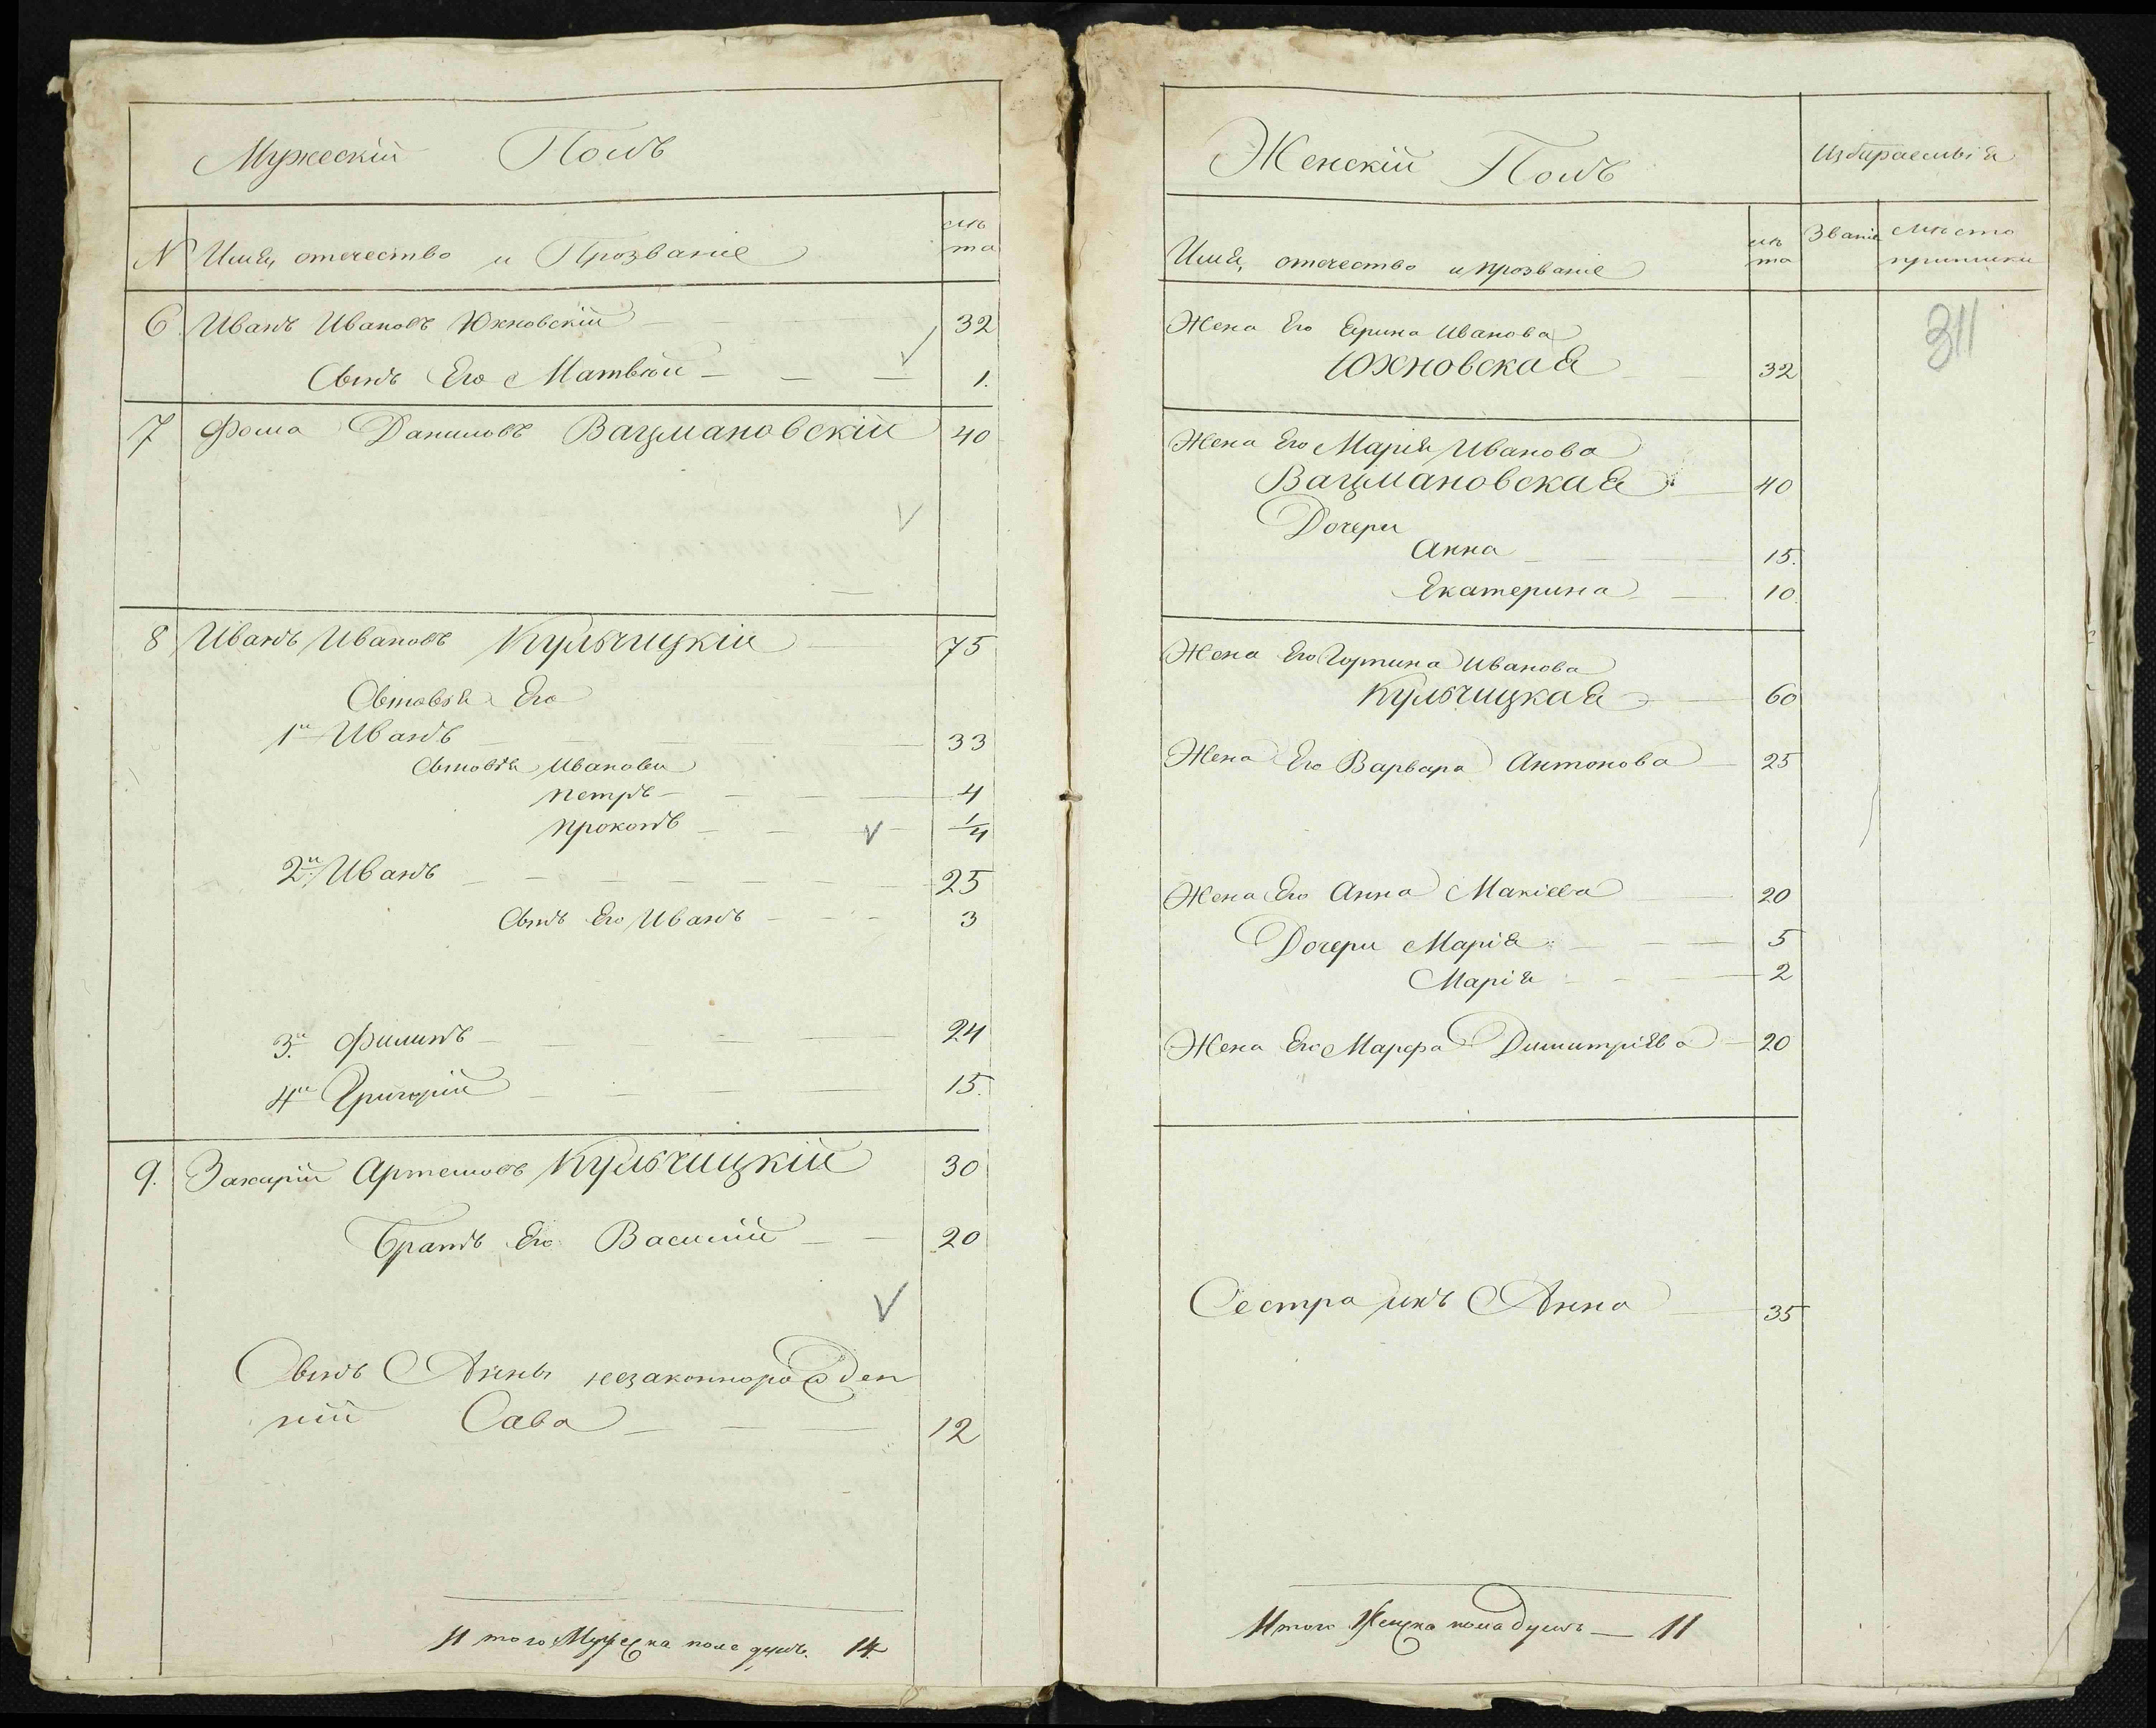 Мужескій Полъ
№ Имя, отечество и Прозваніе лѣта
6 Иванъ Ивановъ Юхновскій 32
Сынъ Его Матвѣй 1.
7 Фома Даниловъ Вацмановскій 40
8 Иванъ Ивановъ Кульчицкій 75
Сыновья Его
1й Иванъ 33
Сыновья Ивановы
Петръ 4
Прокопъ 1/4
2й Иванъ 25
Сынъ Его Иванъ 3
3й Филипъ 24
4й Григорій 15.
9. Захарій Артемовъ Кульчицкій 30
Братъ Его Василій 20
Сынъ Анны незаконнорожден
ній Сава 12
Итого Мужеска пола душъ. 14
Женскій Полъ
Избираемыія
Имя, отечество и прозваніе лѣта Званіе Мѣсто приписки
311
Жена Его Ирина Иванова
Юхновская 32
Жена Его Марія Иванова
Вацмановская 40
Дочери
Анна 15.
Екатерина 10.
Жена Его Иванова
Кульчицкая 60
Жена Его Варвара Антонова 25
Жена Его Анна Макіева 20
Дочери Марія 5
Марія 2
Жена Его Марфа Димитріева 20
Сестра ихъ Анна 35
Итого Женска пола душъ 11